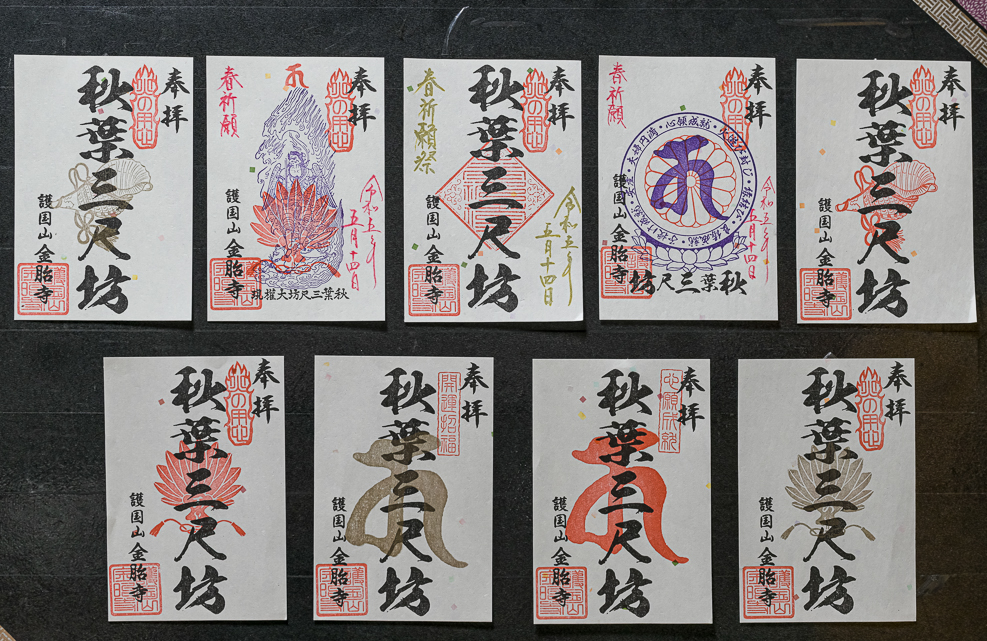 奉拝
火の用心
秋葉三尺坊
護国山 金胎寺
奉拝
火の用心
春祈願
令和五年
五月十四日
秋葉三尺坊大権現
護国山 金胎寺
奉拝
火の用心
秋葉三尺坊
春祈願祭
令和五年
五月十四日
護国山 金胎寺
奉拝
火の用心
春祈願
夫婦円満・心願成就
令和五年
五月十四日
秋葉三尺坊
護国山 金胎寺
奉拝
火の用心
秋葉三尺坊
護国山 金胎寺
奉拝
火の用心
秋葉三尺坊
護国山 金胎寺
奉拝
開運招福
秋葉三尺坊
護国山 金胎寺
奉拝
心願成就
秋葉三尺坊
護国山 金胎寺
奉拝
火の用心
秋葉三尺坊
護国山 金胎寺